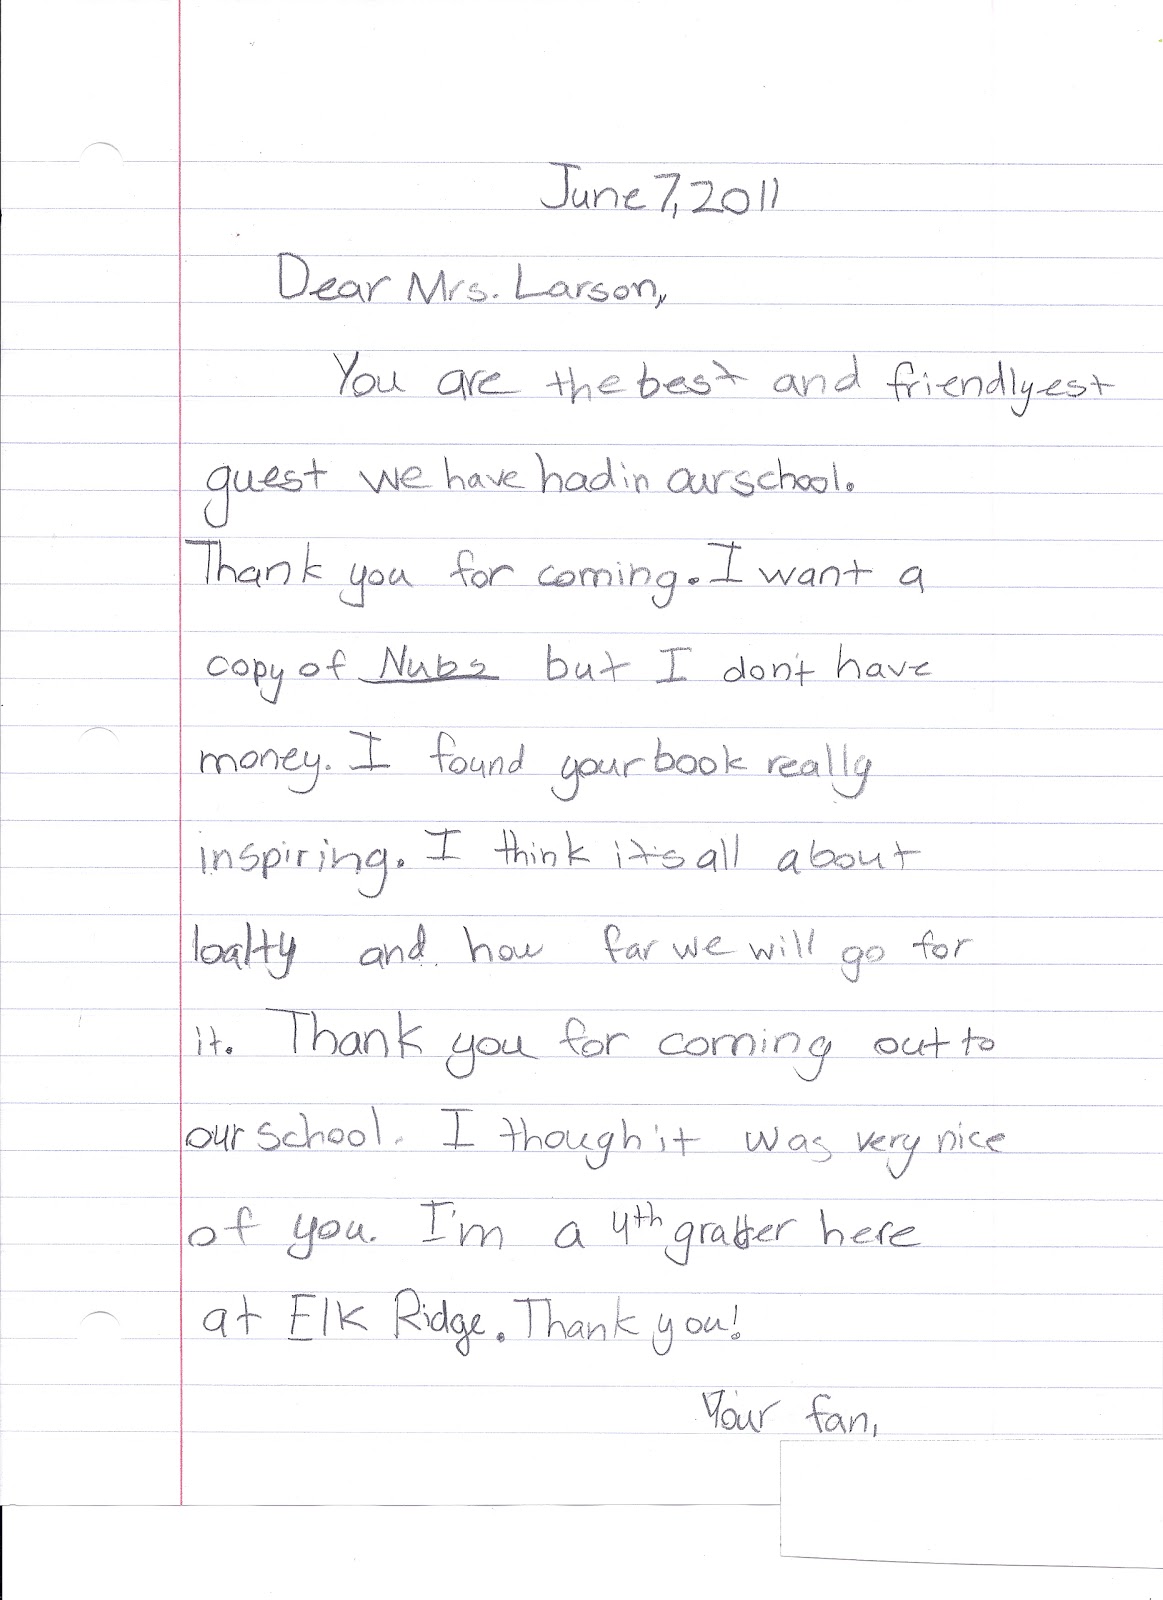 June 7, 2011
Dear Mrs. Larson,
You are the best and friendlyest
guest we have had in our school.
Thank you for coming. I want a
copy of Nubs but I don't have
money. I found your book really
inspiring. I think it's all about
loalty and how far we will go for
it. Thank you for coming out to
our school. I though it was very nice
of you. I'm a 4th grader here
at Elk Ridge. Thank you!
Your fan,